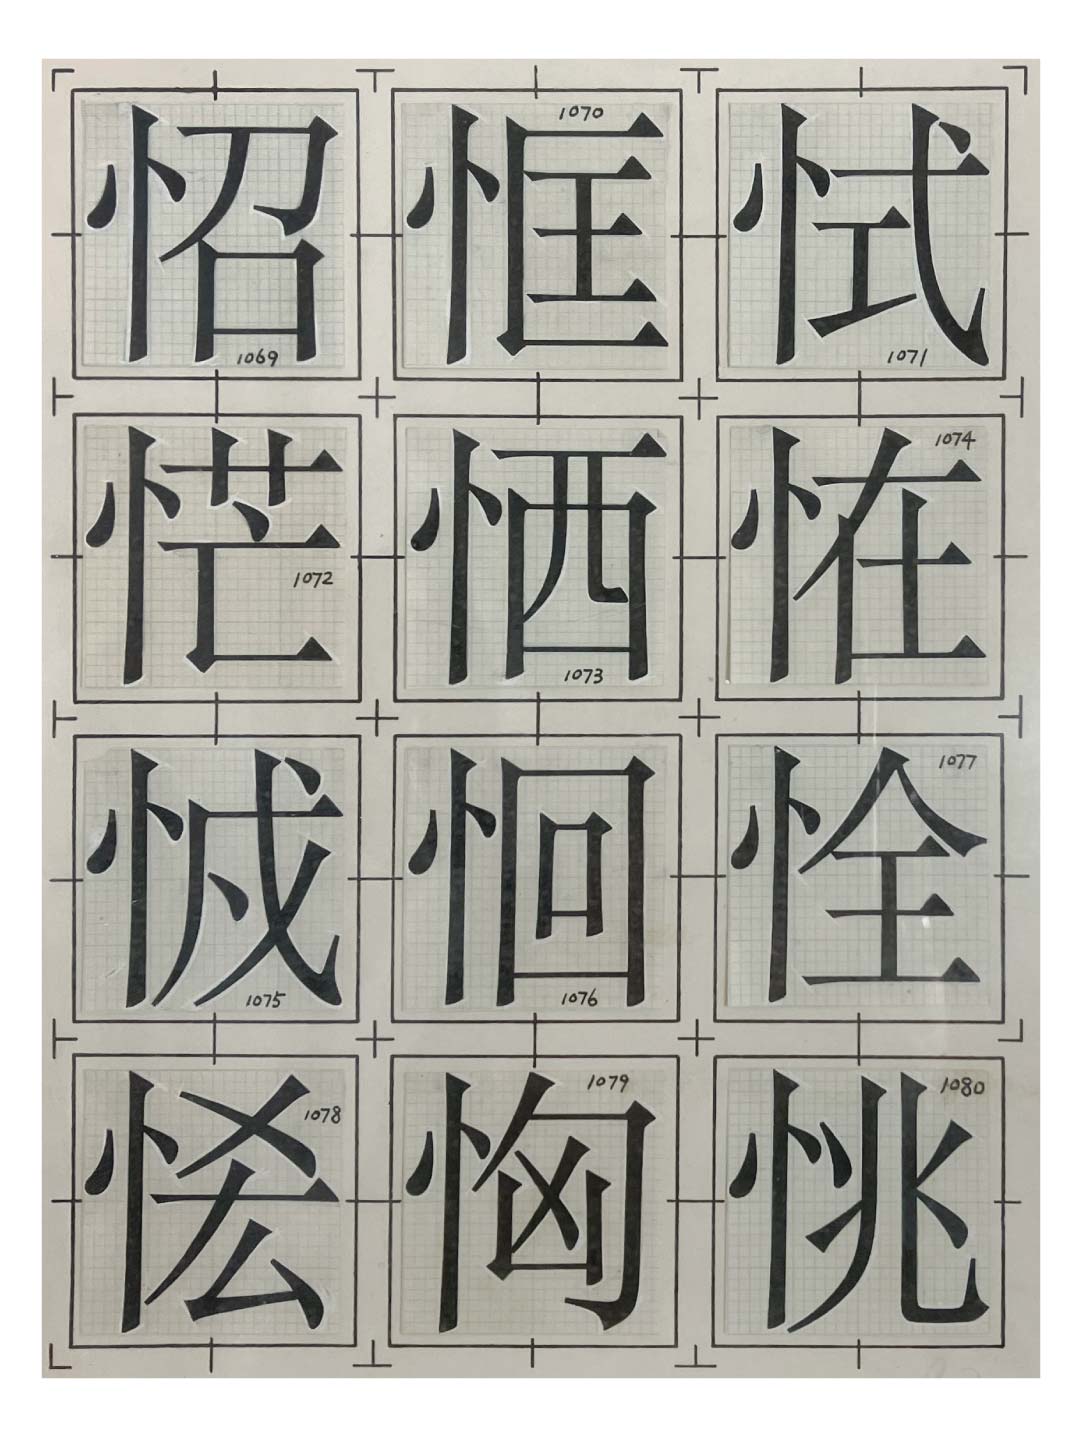 怊 1069
恇 1070
恜 1071
恾 1072
恓 1073
恠 1074
1075
恛 1076
恮 1077
1078
恟 1079
恌 1080